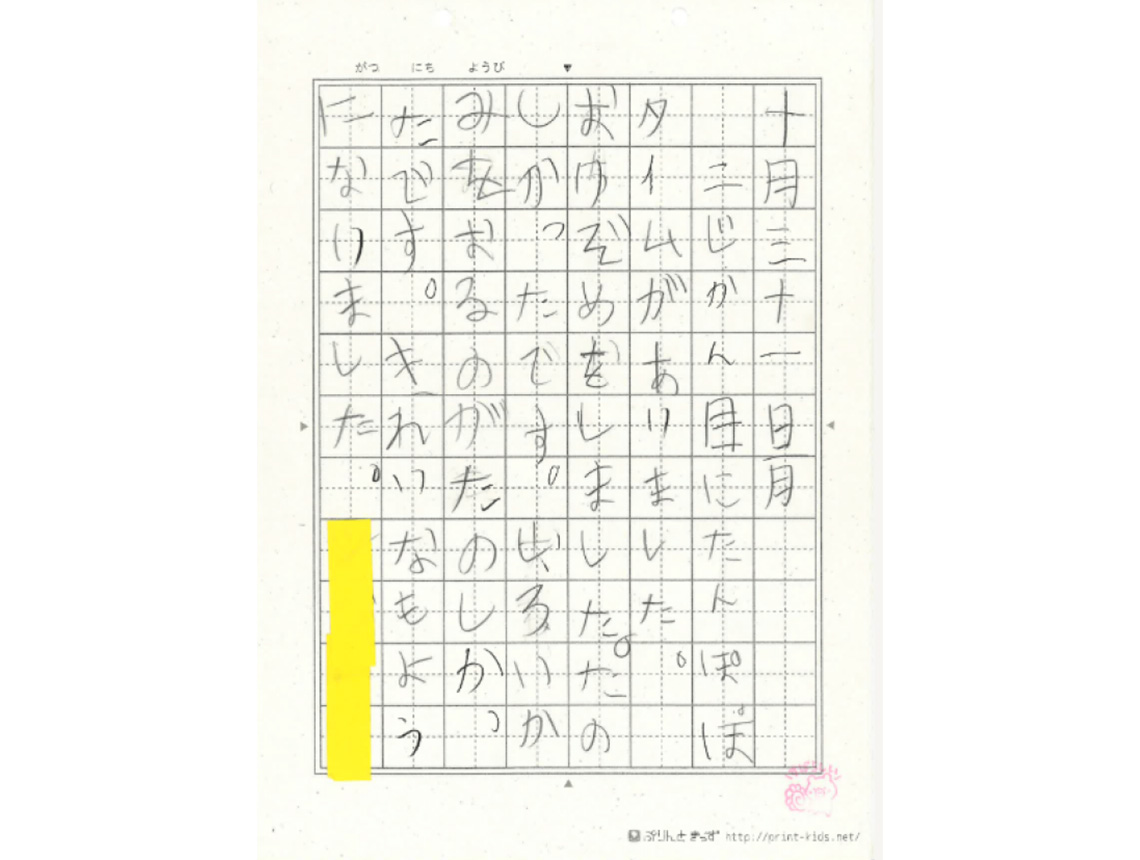 がつ にち ようび
十月三十一日月
二じかん目にたんぽぽ
タイムがありました。
おゆぞめをしました。たの
しかったです。しろいか
みをおるのがたのしかっ
たです。きれいなもよう
になりました。
ぷりんときっず http://print-kids.net/